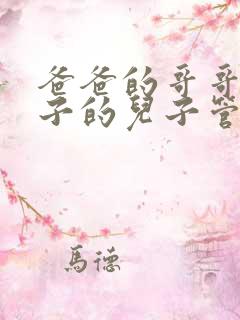 爸爸的哥哥
子的兒子管
馬德